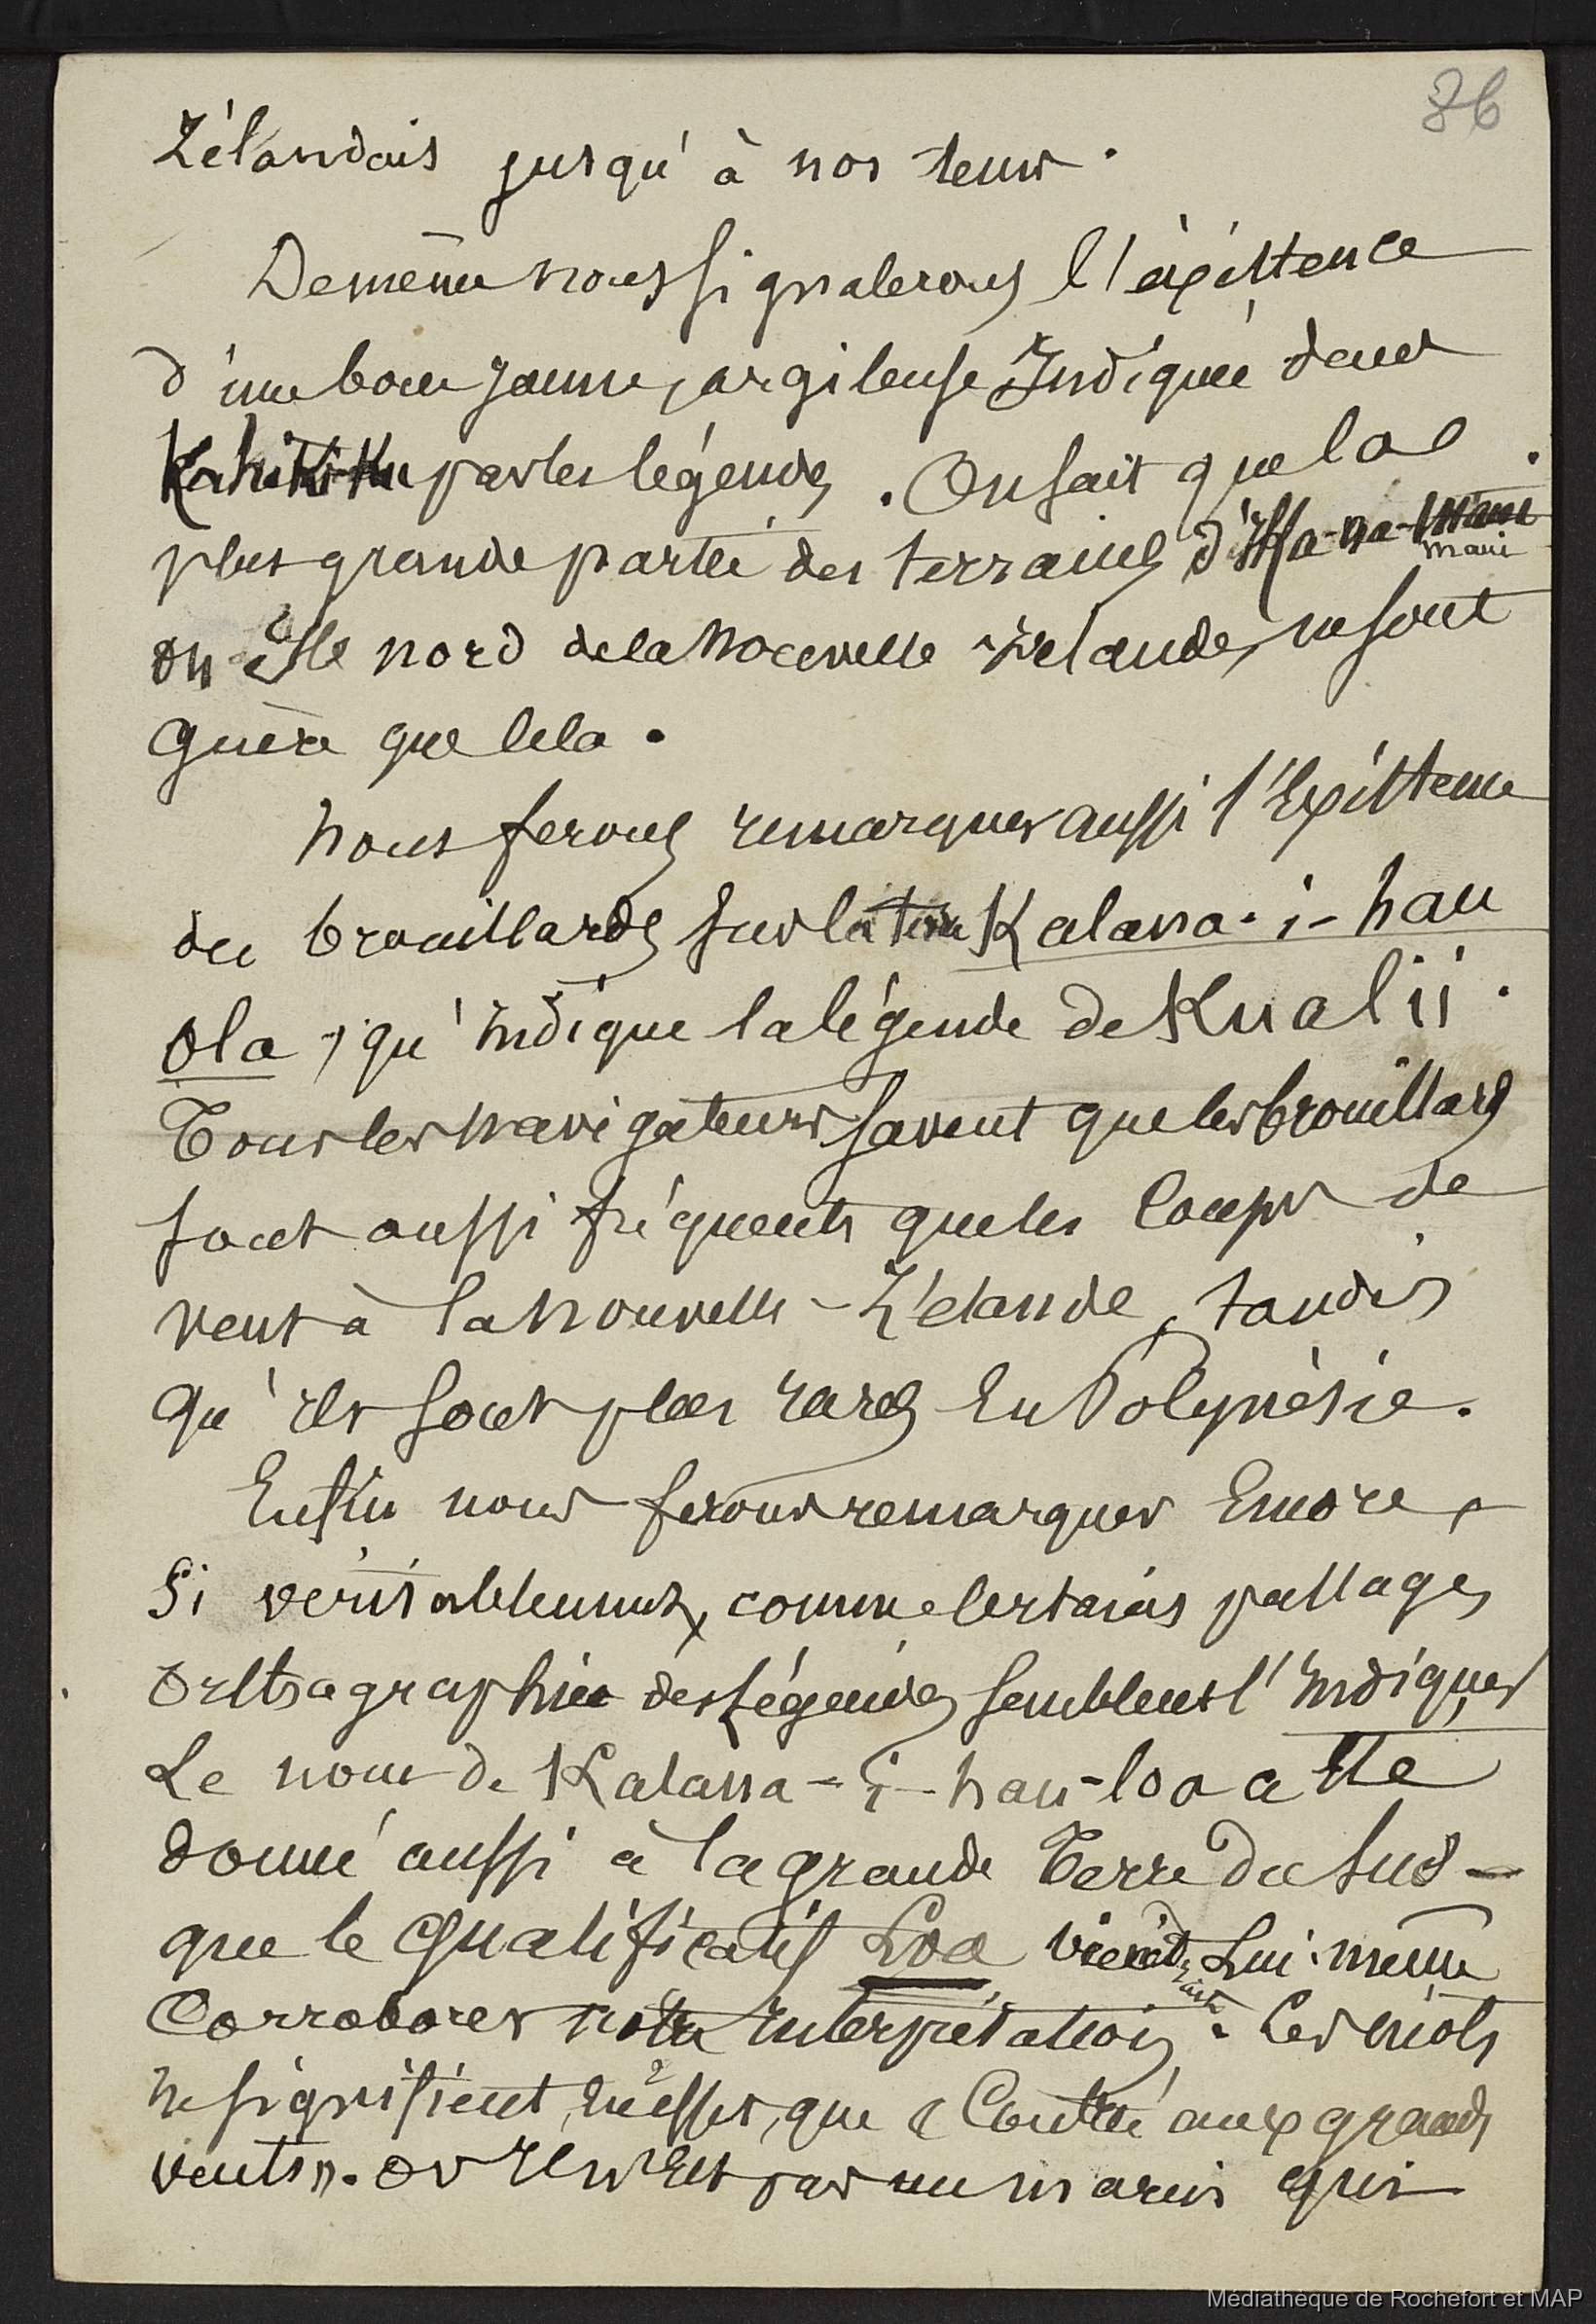 36
Zélandais jusqu'à nos jours.
De même nous signalerons l'existence
d'une boue jaune, argileuse Indiquée dans
Kahiki-Ku par les légendes. On sait que la
plus grande partie des terrains d'Ika-na-Maui
ou île nord de la Nouvelle Zélande, ne sont
guère que cela.
Nous ferons remarquer aussi l'Existence
de brouillards sur la terre Kalana-i-hau
ola, qu'indique la légende de Kualii.
Tous les navigateurs savent que les brouillards
sont aussi fréquents que les coups de
vent à la Nouvelle-Zélande, tandis
qu'ils sont plus rares En Polynésie.
Enfin nous ferons remarquer Encore,
Si véritablement, comme certains passages
orthographiés des légendes semblent l'Indiquer
Le nom de Kalana-i-hau-loa a été
donné aussi à la grande Terre du Sud -
que le qualificatif Loa vient Lui-même
Corroborer notre Interprétation. Ces mots
ne signifient, En effet, que "Contrée aux grands
vents". Or Il n'Est pas un marin qui
Médiathèque de Rochefort et MAP